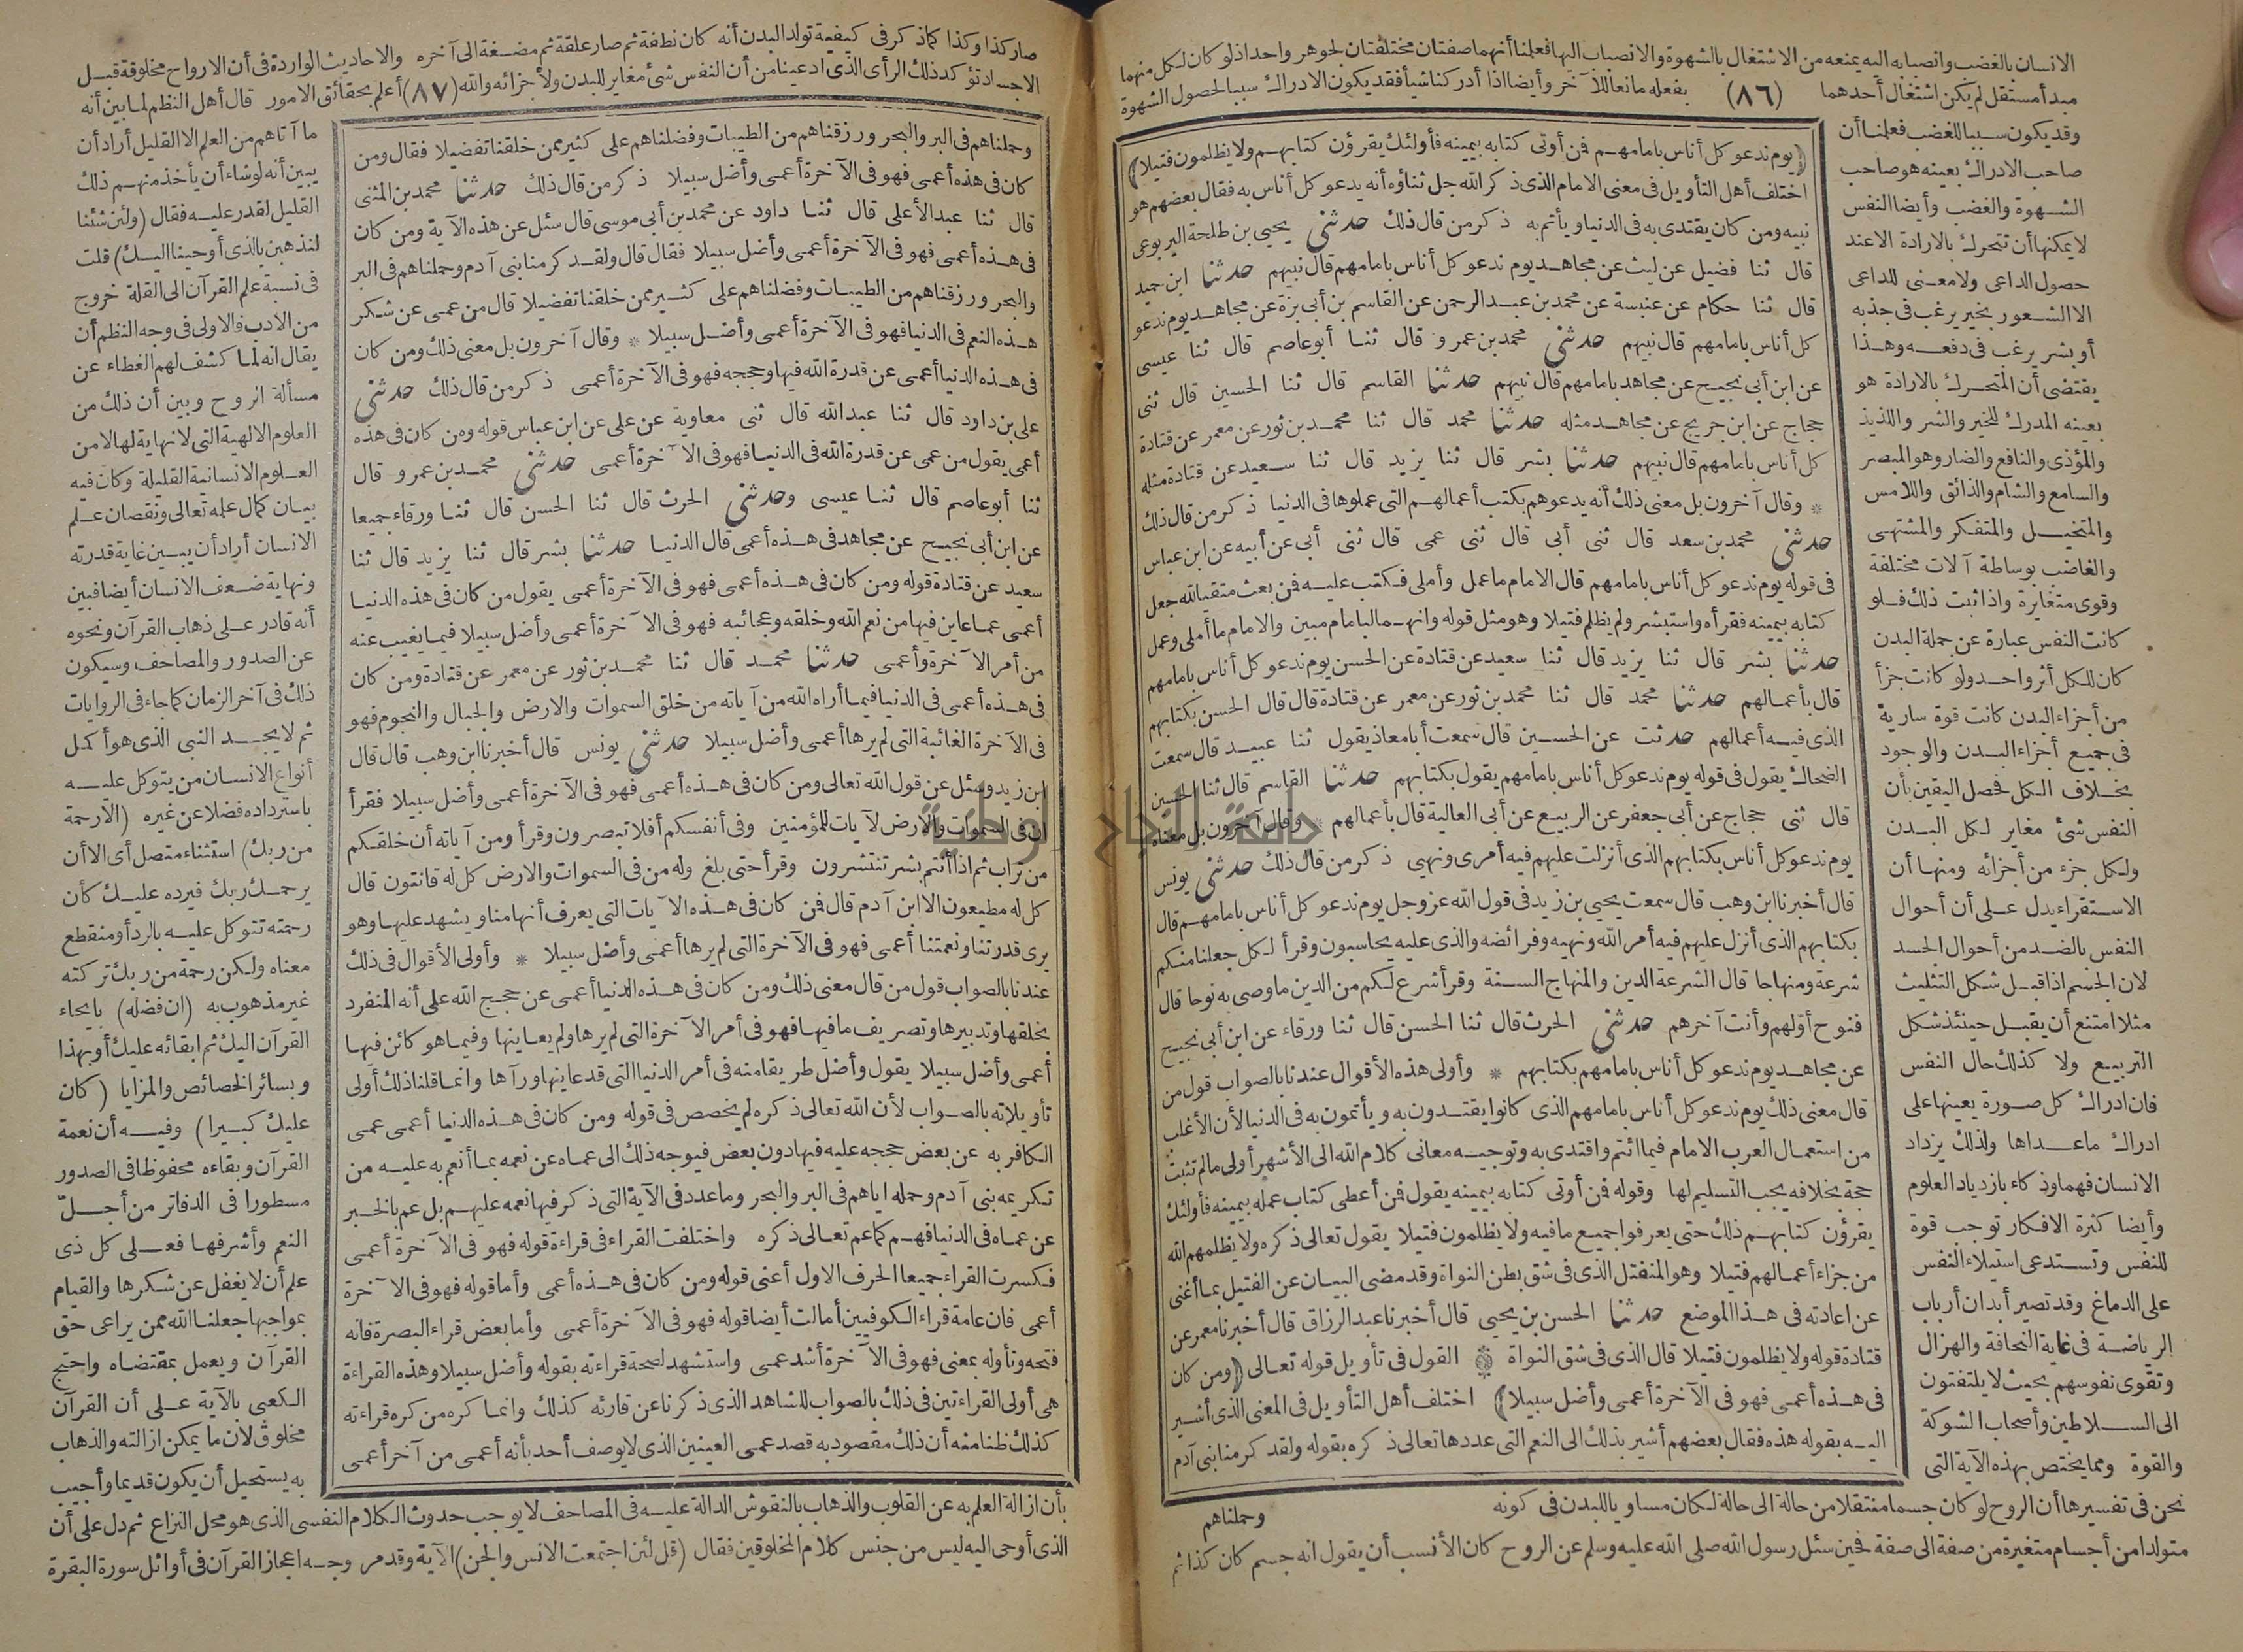 الانسان بالغضب وانصبابه اليه يمنعه من الاشتغال بالشهوة والانصباب اليها فعلمنا أنهما صفتان مختلفتان لجوهر واحد اذ لو كان لكل منهما
مبدأ مستقل لم يكن اشتغال أحدهما (٨٦) بفعله مانعا للآخر وأيضا اذا أدركنا شيأ فقد يكون الادراك سببا لحصول الشهوة
وقد يكون سببا للغضب فعلمنا أن
صاحب الادراك بعينه هو صاحب
الشهوة والغضب وأيضا النفس
لا يمكنها أن تتحرك بالارادة الا عند
حصول الداعى ولا معنى للداعى
الا الشعور بخير يرغب فى جذبه
أو بشر يرغب فى دفعه وهذا
يقتضى أن المتحرك بالارادة هو
بعينه المدرك للخير والشر واللذيذ
والمؤذى والنافع والضار وهو المبصر
والسامع والشام والذائق واللامس
والمتخيل والمتفكر والمشتهى
والغاضب بوساطة آلات مختلفة
وقوى متغايرة واذا ثبت ذلك فلو
كانت النفس عبارة عن جملة البدن
كان للكل أثر واحد ولو كانت جزأ
من أجزاء البدن كانت قوة سارية
فى جميع أجزاء البدن والوجود
بخلاف الكل فحصل اليقين بأن
النفس شئ مغاير لكل البدن
ولكل جزء من أجزائه ومنها أن
الاستقراء يدل على أن أحوال
النفس بالضد من أحوال الجسد
لان الجسم اذا قبل شكل التثليث
مثلا امتنع أن يقبل حينئذ شكل
التربيع ولا كذلك حال النفس
فان ادراك كل صورة يعينها على
ادراك ما عداها ولذلك يزداد
الانسان فهما وذكاء بازدياد العلوم
وأيضا كثرة الافكار توجب قوة
للنفس وتستدعى استيلاء النفس
على الدماغ وقد تصير أبدان أرباب
الرياضة فى غاية النحافة والهزال
وتقوى نفوسهم بحيث لا يلتفتون
الى السلاطين وأصحاب الشوكة
والقوة ومما يختص بهذه الآية التى
نحن فى تفسيرها أن الروح لو كان جسما منتقلا من حالة الى حالة لكان مساويا للبدن فى كونه
متولدا من أجسام متغيرة من صفة الى صفة فحين سئل رسول الله صلى الله عليه وسلم عن الروح كان الأنسب أن يقول انه جسم كان كذا ثم
(يوم ندعو كل أناس بامامهم فمن أوتى كتابه بيمينه فأولئك يقرؤن كتابهم ولا يظلمون فتيلا)
اختلف أهل التأويل فى معنى الامام الذى ذكر الله جل ثناؤه أنه يدعو كل أناس به فقال بعضهم هو
نبيه ومن كان يقتدى به فى الدنيا ويأتم به ذكر من قال ذلك حدثنى يحيى بن طلحة اليربوعى
قال ثنا فضيل عن ليث عن مجاهد يوم ندعو كل أناس بامامهم قال نبيهم حدثنا ابن حميد
قال ثنا حكام عن عنبسة عن محمد بن عبد الرحمن عن القاسم بن أبى بزة عن مجاهد يوم ندعو
كل أناس بامامهم قال نبيهم حدثنى محمد بن عمرو قال ثنا أبو عاصم قال ثنا عيسى
عن ابن أبى نجيح عن مجاهد بامامهم قال نبيهم حدثنا القاسم قال ثنا الحسين قال ثنى
حجاج عن ابن جريج عن مجاهد مثله حدثنا محمد قال ثنا محمد بن ثور عن معمر عن قتادة
كل أناس بامامهم قال نبيهم حدثنا بشر قال ثنا يزيد قال ثنا سعيد عن قتادة مثله
* وقال آخرون بل معنى ذلك أنه يدعوهم بكتب أعمالهم التى عملوها فى الدنيا ذكر من قال ذلك
حدثنى محمد بن سعد قال ثنى أبى قال ثنى عمى قال ثنى أبى عن أبيه عن ابن عباس
فى قوله يوم ندعو كل أناس بامامهم قال الامام ما عمل وأملى فكتب عليه فمن بعث متقيا لله جعل
كتابه بيمينه فقرأه واستبشر ولم يظلم فتيلا وهو مثل قوله وانهما لبامام مبين والامام ما أملى وعمل
حدثنا بشر قال ثنا يزيد قال ثنا سعيد عن قتادة عن الحسن يوم ندعو كل أناس بامامهم
قال بأعمالهم حدثنا محمد قال ثنا محمد بن ثور عن معمر عن قتادة قال قال الحسن بكتابهم
الذى فيه أعمالهم حدثت عن الحسين قال سمعت أبا معاذ يقول ثنا عبيد قال سمعت
الضحاك يقول فى قوله يوم ندعو كل أناس بامامهم يقول بكتابهم حدثنا القاسم قال ثنا الحسين
قال ثنى حجاج عن أبى جعفر عن الربيع عن أبى العالية قال بأعمالهم * وقال آخرون بل معناه
يوم ندعو كل أناس بكتابهم الذى أنزلت عليهم فيه أمرى ونهيى ذكر من قال ذلك حدثنى يونس
قال أخبرنا ابن وهب قال سمعت يحيى بن زيد فى قول الله عز وجل يوم ندعو كل أناس بامامهم قال
بكتابهم الذى أنزل عليهم فيه أمر الله ونهيه وفرائضه والذى عليه يحاسبون وقرأ لكل جعلنا منكم
شرعة ومنهاجا قال الشرعة الدين والمنهاج السنة وقرأ شرع لكم من الدين ما وصى به نوحا قال
فنوح أولهم وأنت آخرهم حدثنى الحرث قال ثنا الحسن قال ثنا ورقاء عن ابن أبى نجيح
عن مجاهد يوم ندعو كل أناس بامامهم بكتابهم * وأولى هذه الأقوال عندنا بالصواب قول من
قال معنى ذلك يوم ندعو كل أناس بامامهم الذى كانوا يقتدون به ويأتمون به فى الدنيا لأن الأغلب
من استعمال العرب الامام فيما ائتم واقتدى به وتوجيه معانى كلام الله الى الأشهر أولى ما لم تثبت
حجة بخلافه يجب التسليم لها وقوله فمن أوتى كتابه بيمينه يقول فمن أعطى كتاب عمله بيمينه فأولئك
يقرؤن كتابهم ذلك حتى يعرفوا جميع ما فيه ولا يظلمون فتيلا يقول تعالى ذكره ولا يظلمهم الله
من جزاء أعمالهم فتيلا وهو المنفتل الذى فى شق بطن النواة وقد مضى البيان عن الفتيل بما أغنى
عن اعادته فى هذا الموضع حدثنا الحسن بن يحيى قال أخبرنا عبد الرزاق قال أخبرنا معمر عن
قتادة قوله ولا يظلمون فتيلا قال الذى فى شق النواة * القول فى تأويل قوله تعالى (ومن كان
فى هذه أعمى فهو فى الآخرة أعمى وأضل سبيلا) اختلف أهل التأويل فى المعنى الذى أشير
اليه بقوله هذه فقال بعضهم أشير بذلك الى النعم التى عددها تعالى ذكره بقوله ولقد كرمنا بنى آدم
وحملناهم
صار كذا وكذا كما ذكر فى كيفية تولد البدن أنه كان نطفة ثم صار علقة ثم مضغة الى آخره والاحاديث الواردة فى أن الارواح مخلوقة قبل
الاجساد تؤكد ذلك الرأى الذى ادعينا من أن النفس شئ مغاير للبدن ولأجزائه والله (٨٧) أعلم بحقائق الامور قال أهل النظم لما بين أنه
وحملناهم فى البر والبحر ورزقناهم من الطيبات وفضلناهم على كثير ممن خلقنا تفضيلا فقال ومن
كان فى هذه أعمى فهو فى الآخرة أعمى وأضل سبيلا ذكر من قال ذلك حدثنا محمد بن المثنى
قال ثنا عبد الأعلى قال ثنا داود عن محمد بن أبى موسى قال سئل عن هذه الآية ومن كان
فى هذه أعمى فهو فى الآخرة أعمى وأضل سبيلا فقال قال ولقد كرمنا بنى آدم وحملناهم فى البر
والبحر ورزقناهم من الطيبات وفضلناهم على كثير ممن خلقنا تفضيلا قال من عمى عن شكر
هذه النعم فى الدنيا فهو فى الآخرة أعمى وأضل سبيلا * وقال آخرون بل معنى ذلك ومن كان
فى هذه الدنيا أعمى عن قدرة الله فيها وحججه فهو فى الآخرة أعمى ذكر من قال ذلك حدثنى
على بن داود قال ثنا عبد الله قال ثنى معاوية عن على عن ابن عباس قوله ومن كان فى هذه
أعمى يقول من عمى عن قدرة الله فى الدنيا فهو فى الآخرة أعمى حدثنى محمد بن عمرو قال
ثنا أبو عاصم قال ثنا عيسى وحدثنى الحرث قال ثنا الحسن قال ثنا ورقاء جميعا
عن ابن أبى نجيح عن مجاهد فى هذه أعمى قال الدنيا حدثنا بشر قال ثنا يزيد قال ثنا
سعيد عن قتادة قوله ومن كان فى هذه أعمى فهو فى الآخرة أعمى يقول من كان فى هذه الدنيا
أعمى عما عاين فيها من نعم الله وخلقه وعجائبه فهو فى الآخرة أعمى وأضل سبيلا فيما يغيب عنه
من أمر الآخرة وأعمى حدثنا محمد قال ثنا محمد بن ثور عن معمر عن قتادة ومن كان
فى هذه أعمى فى الدنيا فيما أراه الله من آياته من خلق السموات والارض والجبال والنجوم فهو
فى الآخرة الغائبة التى لم يرها أعمى وأضل سبيلا حدثنى يونس قال أخبرنا ابن وهب قال قال
ابن زيد وسئل عن قول الله تعالى ومن كان فى هذه أعمى فهو فى الآخرة أعمى وأضل سبيلا فقرأ
ان فى السموات والارض لآيات للمؤمنين وفى أنفسكم أفلا تبصرون وقرأ ومن آياته أن خلقكم
من تراب ثم اذا أنتم بشر تنتشرون وقرأ حتى بلغ وله من فى السموات والارض كل له قانتون قال
كل له مطيعون الا ابن آدم قال فمن كان فى هذه الآيات التى يعرف أنها منا ويشهد عليها وهو
يرى قدرتنا ونعمتنا أعمى فهو فى الآخرة التى لم يرها أعمى وأضل سبيلا * وأولى الأقوال فى ذلك
عندنا بالصواب قول من قال معنى ذلك ومن كان فى هذه الدنيا أعمى عن حجج الله على أنه المنفرد
بخلقها وتدبيرها وتصريف ما فيها فهو فى أمر الآخرة التى لم يرها ولم يعاينها وفيما هو كائن فيها
أعمى وأضل سبيلا يقول وأضل طريقا منه فى أمر الدنيا التى قد عاينها ورآها وانما قلنا ذلك أولى
تأويلاته بالصواب لأن الله تعالى ذكره لم يخصص فى قوله ومن كان فى هذه الدنيا أعمى عمى
الكافر به عن بعض حججه عليه فيها دون بعض فيوجه ذلك الى عماه عن نعمه بما أنعم به عليه من
تكريمه بنى آدم وحمله اياهم فى البر والبحر وما عدد فى الآية التى ذكر فيها نعمه عليهم بل عم بالخبر
عن عماه فى الدنيا فهم كما عم تعالى ذكره واختلفت القراء فى قراءة قوله فهو فى الآخرة أعمى
فكسرت القراء جميعا الحرف الاول أعنى قوله ومن كان فى هذه أعمى وأما قوله فهو فى الآخرة
أعمى فان عامة قراء الكوفيين أمالت أيضا قوله فهو فى الآخرة أعمى وأما بعض قراء البصرة فانه
فتحه وتأوله بمعنى فهو فى الآخرة أشد عمى واستشهد لصحة قراءته بقوله وأضل سبيلا وهذه القراءة
هى أولى القراءتين فى ذلك بالصواب للشاهد الذى ذكرنا عن قارئه كذلك وانما كره من كره قراءته
كذلك ظنا منه أن ذلك مقصود به قصد عمى العينين الذى لا يوصف أحد بأنه أعمى من آخر أعمى
ما آتاهم من العلم الا القليل أراد أن
يبين أنه لو شاء أن يأخذ منهم ذلك
القليل لقدر عليه فقال (ولئن شئنا
لنذهبن بالذى أوحينا اليك) قلت
فى نسبة علم القرآن الى القلة خروج
من الادب فالاولى فى وجه النظم أن
يقال انه لما كشف لهم الغطاء عن
مسألة الروح وبين أن ذلك من
العلوم الالهية التى لا نهاية لها لا من
العلوم الانسانية القليلة وكان فيه
بيان كمال علمه تعالى ونقصان علم
الانسان أراد أن يبين غاية قدرته
ونهاية ضعف الانسان أيضا فبين
أنه قادر على ذهاب القرآن ونحوه
عن الصدور والمصاحف وسيكون
ذلك فى آخر الزمان كما جاء فى الروايات
ثم لا يجد النبى الذى هو أكمل
أنواع الانسان من يتوكل عليه
باسترداده فضلا عن غيره (الا رحمة
من ربك) استثناء متصل أى الا أن
يرحمك ربك فيرده عليك كأن
رحمته تتوكل عليه بالرد أو منقطع
معناه ولكن رحمة من ربك تركته
غير مذهوب به (ان فضله) بايحاء
القرآن اليك ثم ابقائه عليك أو بهذا
وبسائر الخصائص والمزايا (كان
عليك كبيرا) وفيه أن نعمة
القرآن وبقاءه محفوظا فى الصدور
مسطورا فى الدفاتر من أجل
النعم وأشرفها فعلى كل ذى
علم أن لا يغفل عن شكرها والقيام
بمواجبها جعلنا الله ممن يراعى حق
القرآن ويعمل بمقتضاه واحتج
الكعبى بالآية على أن القرآن
مخلوق لان ما يمكن ازالته والذهاب
به يستحيل أن يكون قديما وأجيب
بأن ازالة العلم به عن القلوب والذهاب بالنقوش الدالة عليه فى المصاحف لا يوجب حدوث الكلام النفسى الذى هو محل النزاع ثم دل على أن
الذى أوحى اليه ليس من جنس كلام المخلوقين فقال (قل لئن اجتمعت الانس والجن) الآية وقد مر وجه اعجاز القرآن فى أوائل سورة البقرة
جامعة النجاح الوطنية